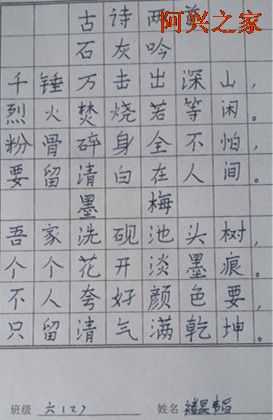 阿兴之家
古诗两首
石灰吟
千锤万击出深山,
烈火焚烧若等闲。
粉骨碎身全不怕,
要留清白在人间。
墨梅
吾家洗砚池头树,
个个花开淡墨痕。
不人夸好颜色要,
只留清气满乾坤。
班级 六(2) 姓名